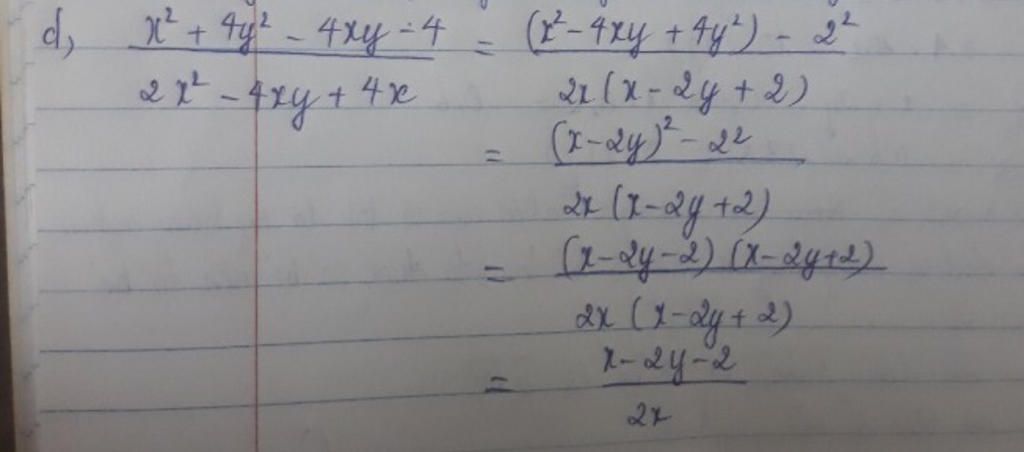 d, x² + 4y² - 4xy - 4 / 2x² - 4xy + 4x = (x² - 4xy + 4y²) - 2² / 2x(x - 2y + 2)
= (x - 2y)² - 2² / 2x(x - 2y + 2)
= (x - 2y - 2)(x - 2y + 2) / 2x(x - 2y + 2)
= x - 2y - 2 / 2x